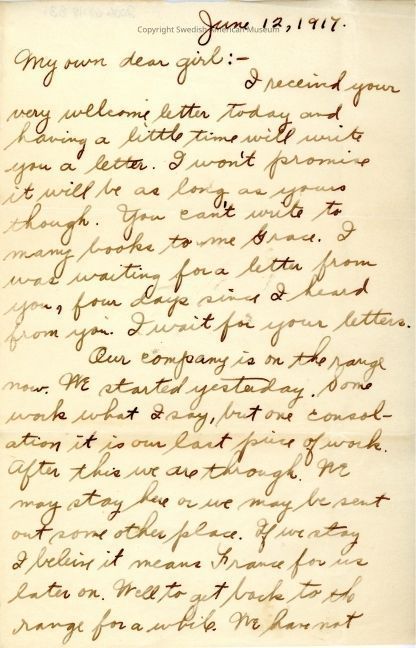 Copyright Swedish American Museum
June 12, 1917.
My own dear girl:-
I receivd your
very wellcome letter today and
having a little time will write
you a letter. I won't promise
it will be as long as yours
though. You can't write to
many books to me Grace. I
was waiting for a letter from
you, four days since I heard
from you. I wait for your letters.
Our company is on the range
now. We started yesterday. Some
work what I say, but one consol-
ation it is our last piece of work.
After this we are through. We
may stay here or we may be sent
out some other place. If we stay
I beleive it means France for us
later on. Well to get back to the
range for a while. We have not